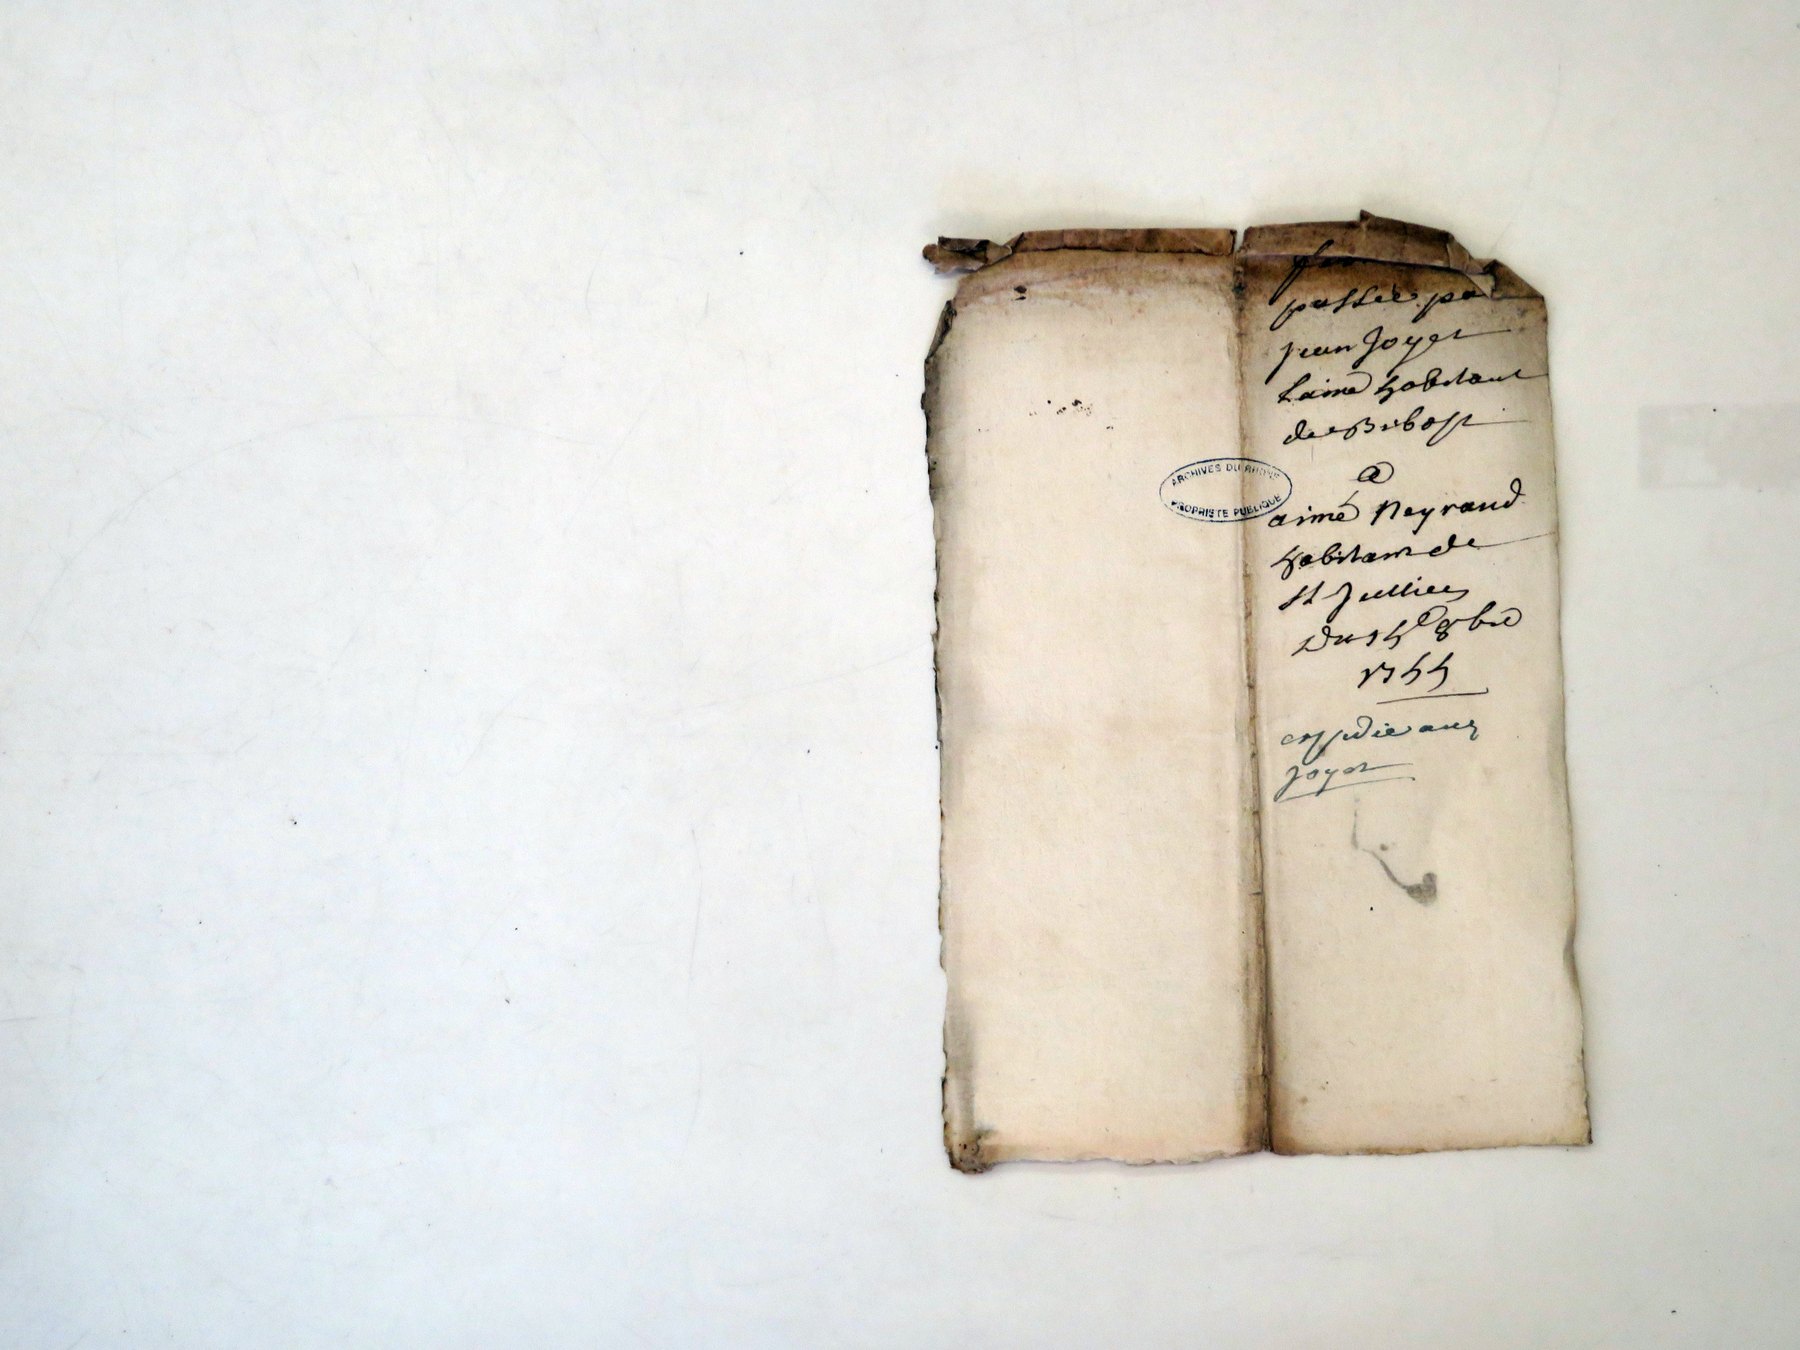 passée pa
Jean Joyet
Lainé habitant
de Bibost
a
aimé Neyraud
habitant de
st Jullien
Du 14e 8bre
1744
expedie aud
Joyet
ARCHIVES DU RHONE
PROPRISTE PUBLIQUE